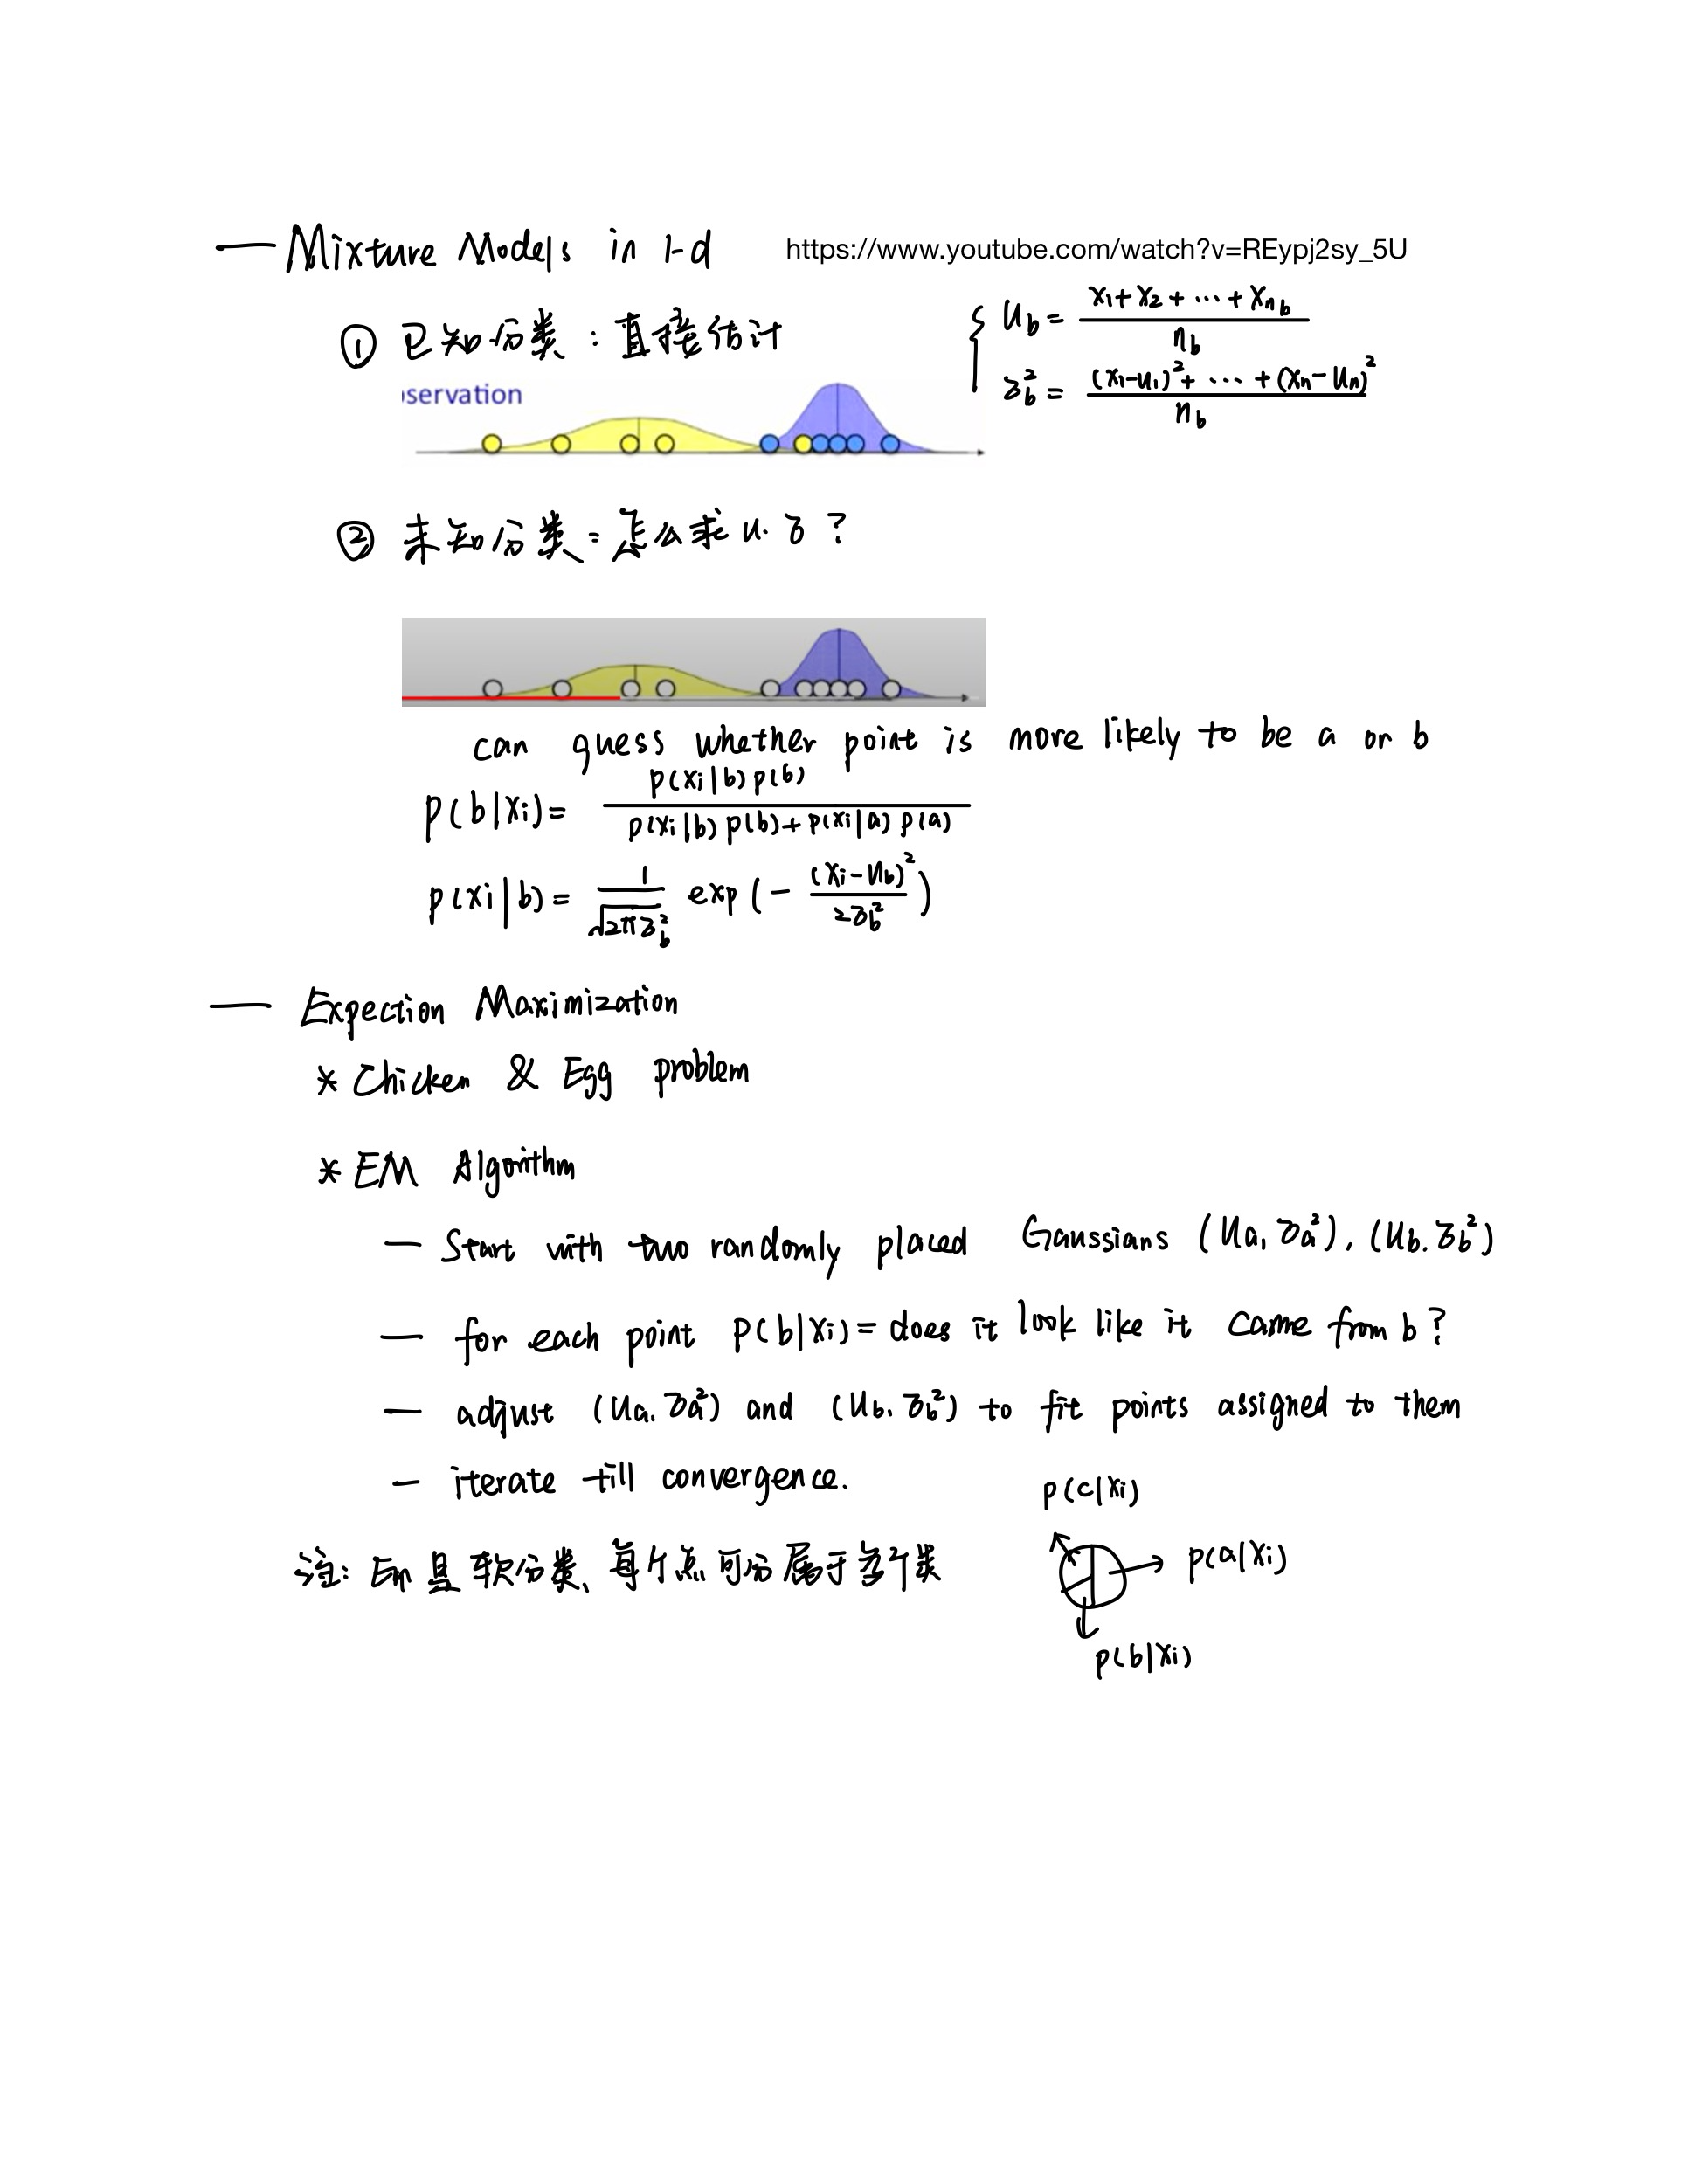 — Mixture Models in 1-d https://www.youtube.com/watch?v=REypj2sy_5U
① 已知分类：直接估计
{ u_b = (x₁ + x₂ + ⋯ + x_{n_b}) / n_b
σ_b² = ((x₁-u₁)² + ⋯ + (x_n-u_n)²) / n_b
servation
② 未知分类：怎么求 u. σ ?
can guess whether point is more likely to be a or b
p(b|xi) = p(xi|b) p(b) / (p(xi|b) p(b) + p(xi|a) p(a))
p(xi|b) = 1/√(2πσ_b²) exp(- (xi-u_b)² / 2σ_b²)
— Expection Maximization
* Chicken & Egg problem
* EM Algorithm
— Start with two randomly placed Gaussians (u_a, σ_a²), (u_b. σ_b²)
— for each point P(b|xi) = does it look like it came from b?
— adjust (u_a. σ_a²) and (u_b. σ_b²) to fit points assigned to them
— iterate till convergence.
p(c|xi)
注: Em 是软分类、每个点可分属于多个类
p(a|xi)
p(b|xi)